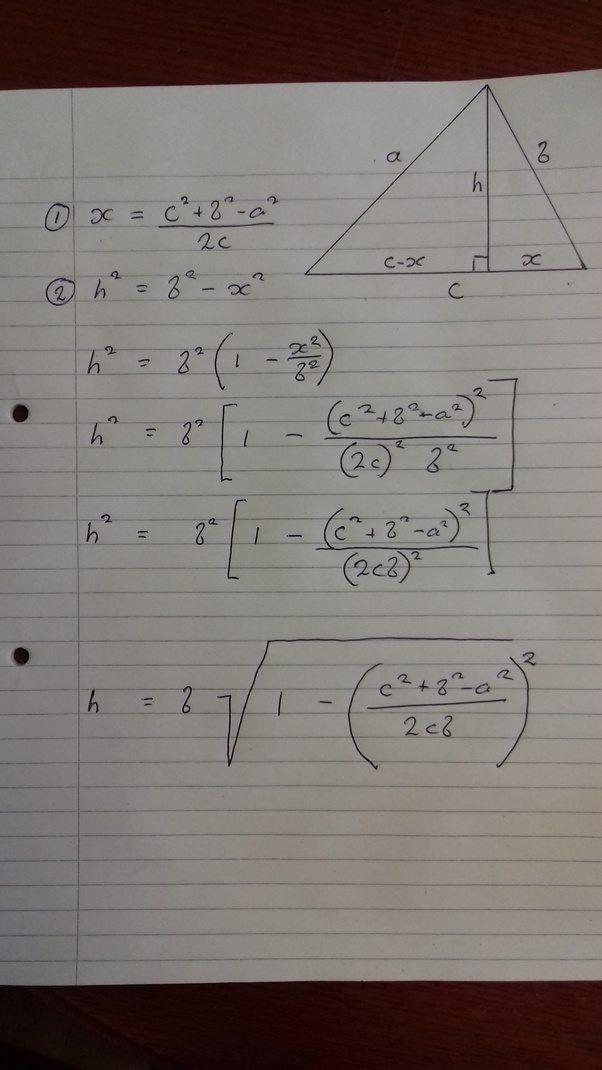 a
b
h
c-x
x
c
① x = (c² + b² - a²) / 2c
② h² = b² - x²
h² = b² (1 - x²/b²)
h² = b² [1 - (c² + b² - a²)² / (2c)² b²]
h² = b² [1 - (c² + b² - a²)² / (2cb)²]
h = b √(1 - ((c² + b² - a²) / 2cb)²)